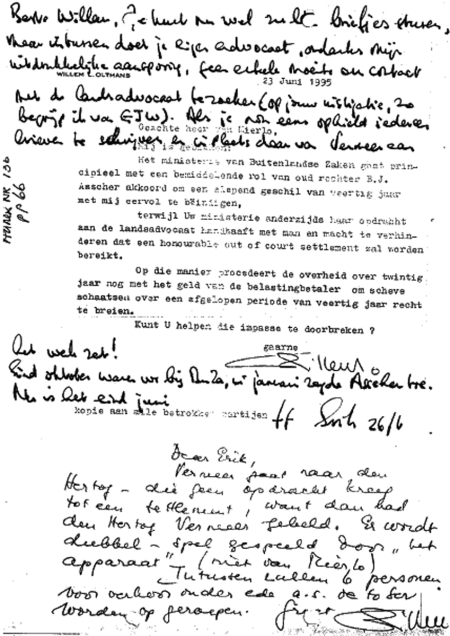 Beste Willem, Je kunt nu wel zulke briefjes sturen,
maar intussen doet je eigen advocaat, ondanks mijn
uitdrukkelijke aansporing, geen enkele moeite om contact
WILLEM L. OLTMANS
23 Juni 1995
met de landsadvocaat te zoeken (op jouw instigatie, zo
begrijp ik van EJW). Als je nou eens ophield iedereen
Geachte heer van Mierlo,
brieven te schrijven en in plaats daar van Vermeer aan
MAREK NR 136
PP 66
Het ministerie van Buitenlandse Zaken gaat prin-
cipieel met een bemiddelende rol van oud rechter B.J.
Asscher akkoord om een slepend geschil van veertig jaar
met mij eervol te beëindigen,
terwijl Uw ministerie anderzijds haar opdracht
aan de landsadvocaat handhaaft met man en macht te verhin-
deren dat een honourable out of court settlement zal worden
bereikt.
Op die manier procedeert de overheid over twintig
jaar nog met het geld van de belastingbetaler om scheve
schaatsen over een afgelopen periode van veertig jaar recht
te breien.
Kunt U helpen die impasse te doorbreken ?
gaarne
het werk zet!
Eind oktober waren we bij BuZa, in januari zegde Asscher toe.
Nu is het eind juni
kopie aan alle betrokken partijen
Erik 26/6
Dear Erik,
Vermeer gaat naar den
Hertog - die geen opdracht kreeg
tot een settlement, want dan had
den Hertog Vermeer gebeld. Er wordt
dubbel-spel gespeeld door "het
apparaat" (niet van Mierlo)
Intussen zullen 6 personen
voor verhoor onder ede a.s. oktober
worden op geroepen. Groet